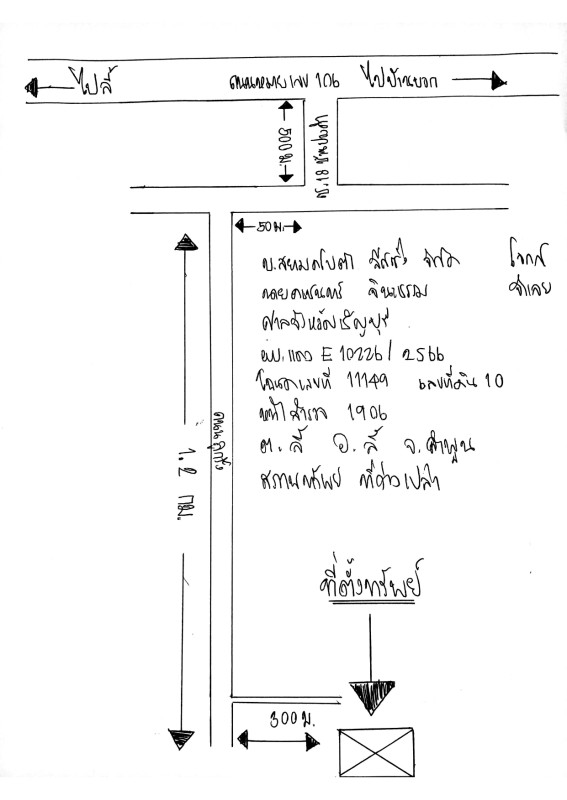 ไปลี้
ถนนหมายเลข 106
ไปบ้านบอก
500 ม.
ซ.18
50 ม.
บ.สยามคูโบต้า ลีสซิ่ง จำกัด โจทก์
นาย จำเลย
ศาลจังหวัดธัญบุรี
ผบ.แดง E 10226/2566
โฉนดเลขที่ 11149 เลขที่ดิน 10
หน้าสำรวจ 1906
ต. ลี้ อ. ลี้ จ. ลำพูน
สภาพทรัพย์ ที่ว่างเปล่า
ถนนลูกรัง
1.2 กม.
ที่ตั้งทรัพย์
300 ม.